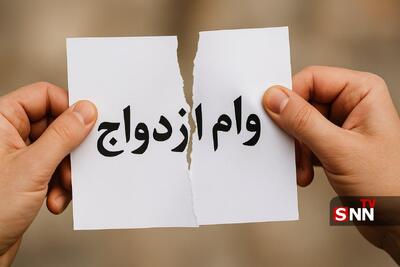 وام ازدواج
SNN
TV